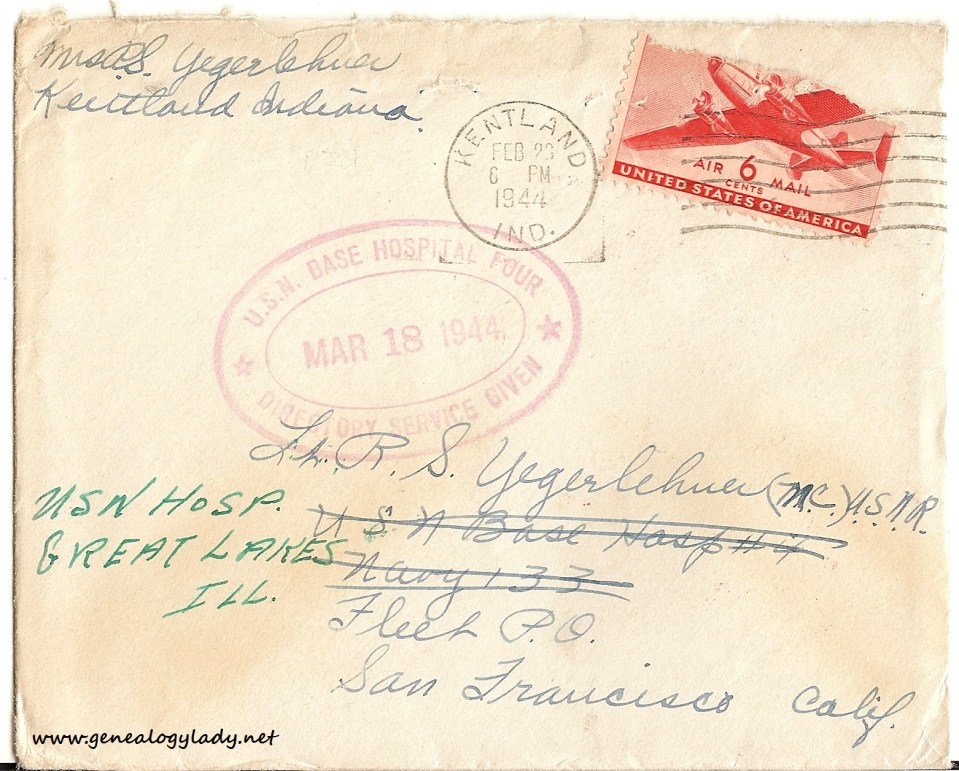 Mrs R.S. Yegerlehner
Kentland Indiana.
KENTLAND
FEB 23
6 PM
1944
IND.
AIR 6 MAIL
CENTS
UNITED STATES OF AMERICA
U.S.N. BASE HOSPITAL FOUR
MAR 18 1944
DIRECTORY SERVICE GIVEN
Lt. R. S. Yegerlehner (M.C.) U.S.N.R.
U S N Base Hosp #4
Navy 133
Fleet P.O.
San Francisco Calif.
USN HOSP.
GREAT LAKES
ILL.
www.genealogylady.net